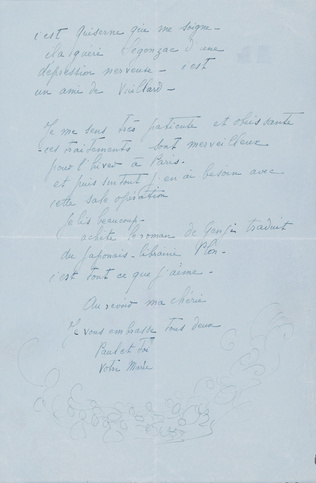 c'est Quiserne qui me soigne -
il a guéri Segonzac d'une
dépression nerveuse - c'est
un ami de Vuillard -
Je me sens très patiente et obéissante
ces traitements sont merveilleux
pour l'hiver à Paris.
et puis surtout j'en ai besoin avec
cette sale opération
Je lis beaucoup -
achète le roman de Genji traduit
du Japonais - librairie Plon -
c'est tout ce que j'aime -
Au revoir ma chérie
Je vous embrasse tous deux
Paul et toi
Votre Marie